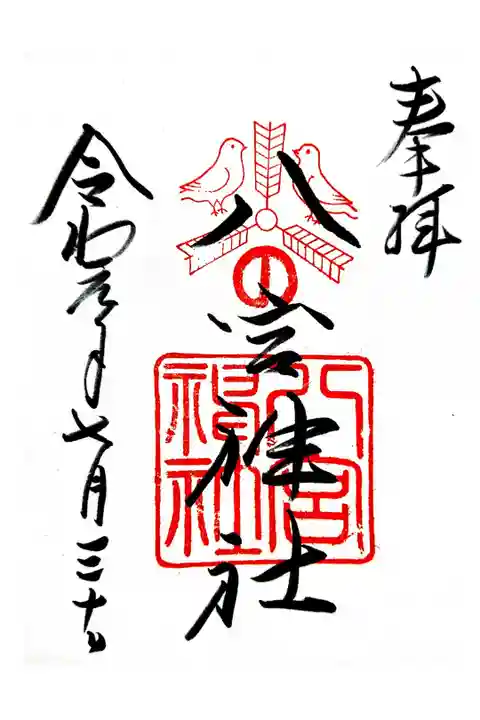 奉拝
八宮神社
令和元年七月三十日
八宮
神社